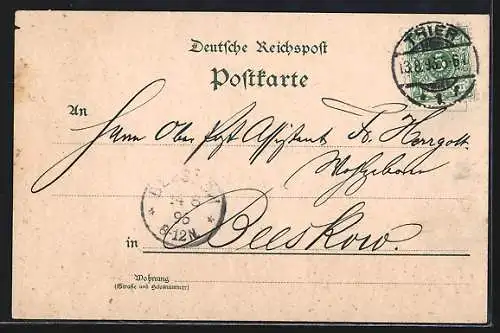 Deutsche Reichspost
Postkarte
TRIER
13.8.95.5-6N.
1
An
Herrn Ober Post Assistent Fr. Herrgott
Wohlgeboren
BEESKOW
14 8
95
8-12N.
in Beeskow.
Wohnung
(Straße und Hausnummer)